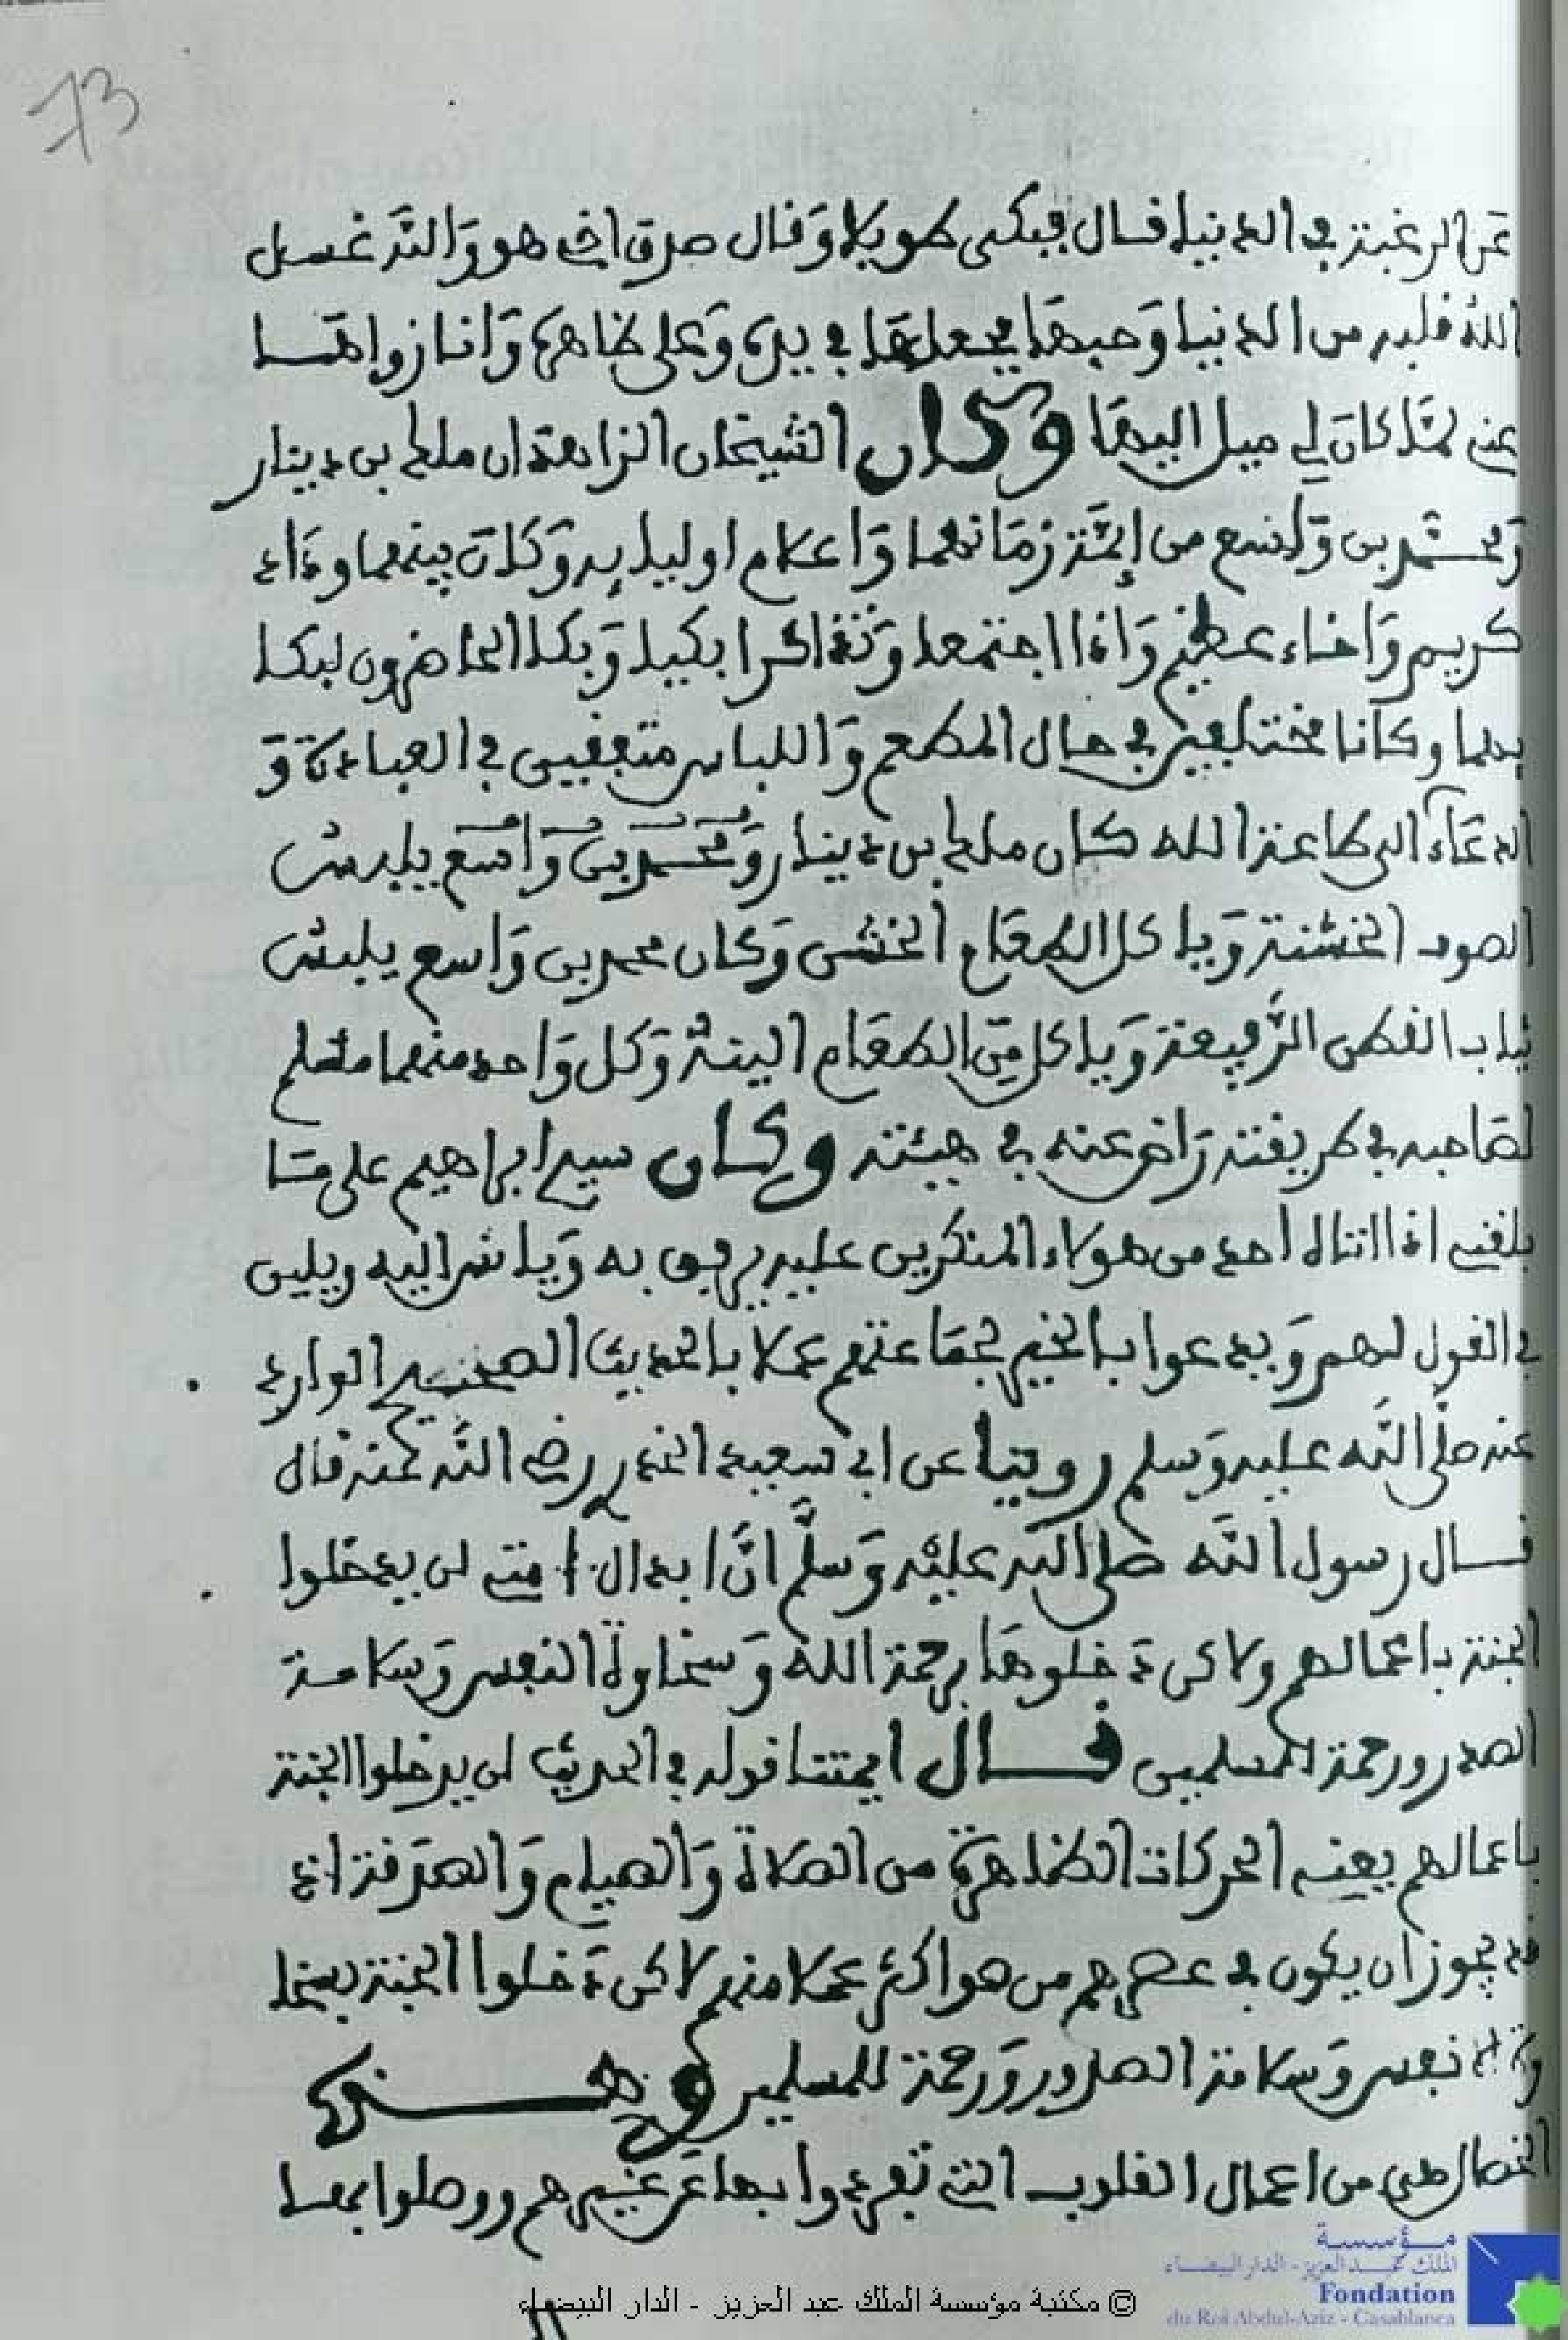 73
عن الرغبة في الدنيا فال فبكى طويلا وفال صدق اخي هو والله غسل
الله فلبه من الدنيا وحبها يجعلها في يده وعلى ظاهره وانا زواها
عني لما كان لي ميل اليها وكان الشيخان الزاهدان ملك بن دينار
ومحمد بن واسع من ايمة زمانهما واعلام اوليايه وكان بينهما وداد
كريم واخاء عظيم واذا اجتمعا وتذاكرا بكيا وبكا الحاضرون لبكا
يهما وكانا مختلفين في حال المطعم واللباس متفقين في العبادة و
الدعاء الى طاعة الله كان ملك بن دينار ومحمد بن واسع يلبس
الصوف الخشنة وياكل الطعام الخشن وكان محمد بن واسع يلبس
ثياب القطن الرفيعة وياكل من الطعام الينة وكل واحد منهما مسلم
لصاحبه في طريفته راض عنه في هيئته وكان سيد ابراهيم على ما
بلغني اذا اتاه احد من هولاء المنكرين عليه يرفق به وياشر اليه ويلين
في الفول لهم ويدعوا بالخير لجماعتهم عملا بالحديث الصحيح الوارد
عنه صلى الله عليه وسلم روينا عن ابي سعيد الخدري رضي الله عنه فال
فال رسول الله صلى الله عليه وسلم ان ابدال امتي لن يدخلوا
الجنة باعمالهم ولاكن دخلوها برحمة الله وسخاوة النفس وسلامة
الصدر ورحمة المسلمين فال ايمتنا فوله في الحديث لن يدخلوا الجنة
باعمالهم يعني الحركات الظاهرة من الصلاة والصيام والصدفة اذ
فد يجوز ان يكون في عصرهم من هو اكثر عملا منهم لاكن دخلوا الجنة بسخا
وة النفس وسلامة الصدور ورحمة للمسلمين وهذه
الخصال هي من اعمال الفلوب التي تفردوا بها عن غيرهم ووصلوا بها
© مكتبة مؤسسة الملك عبد العزيز - الدار البيضاء
مؤسسة
الملك عبد العزيز - الدار البيضاء
Fondation
du Roi Abdul-Aziz - Casablanca